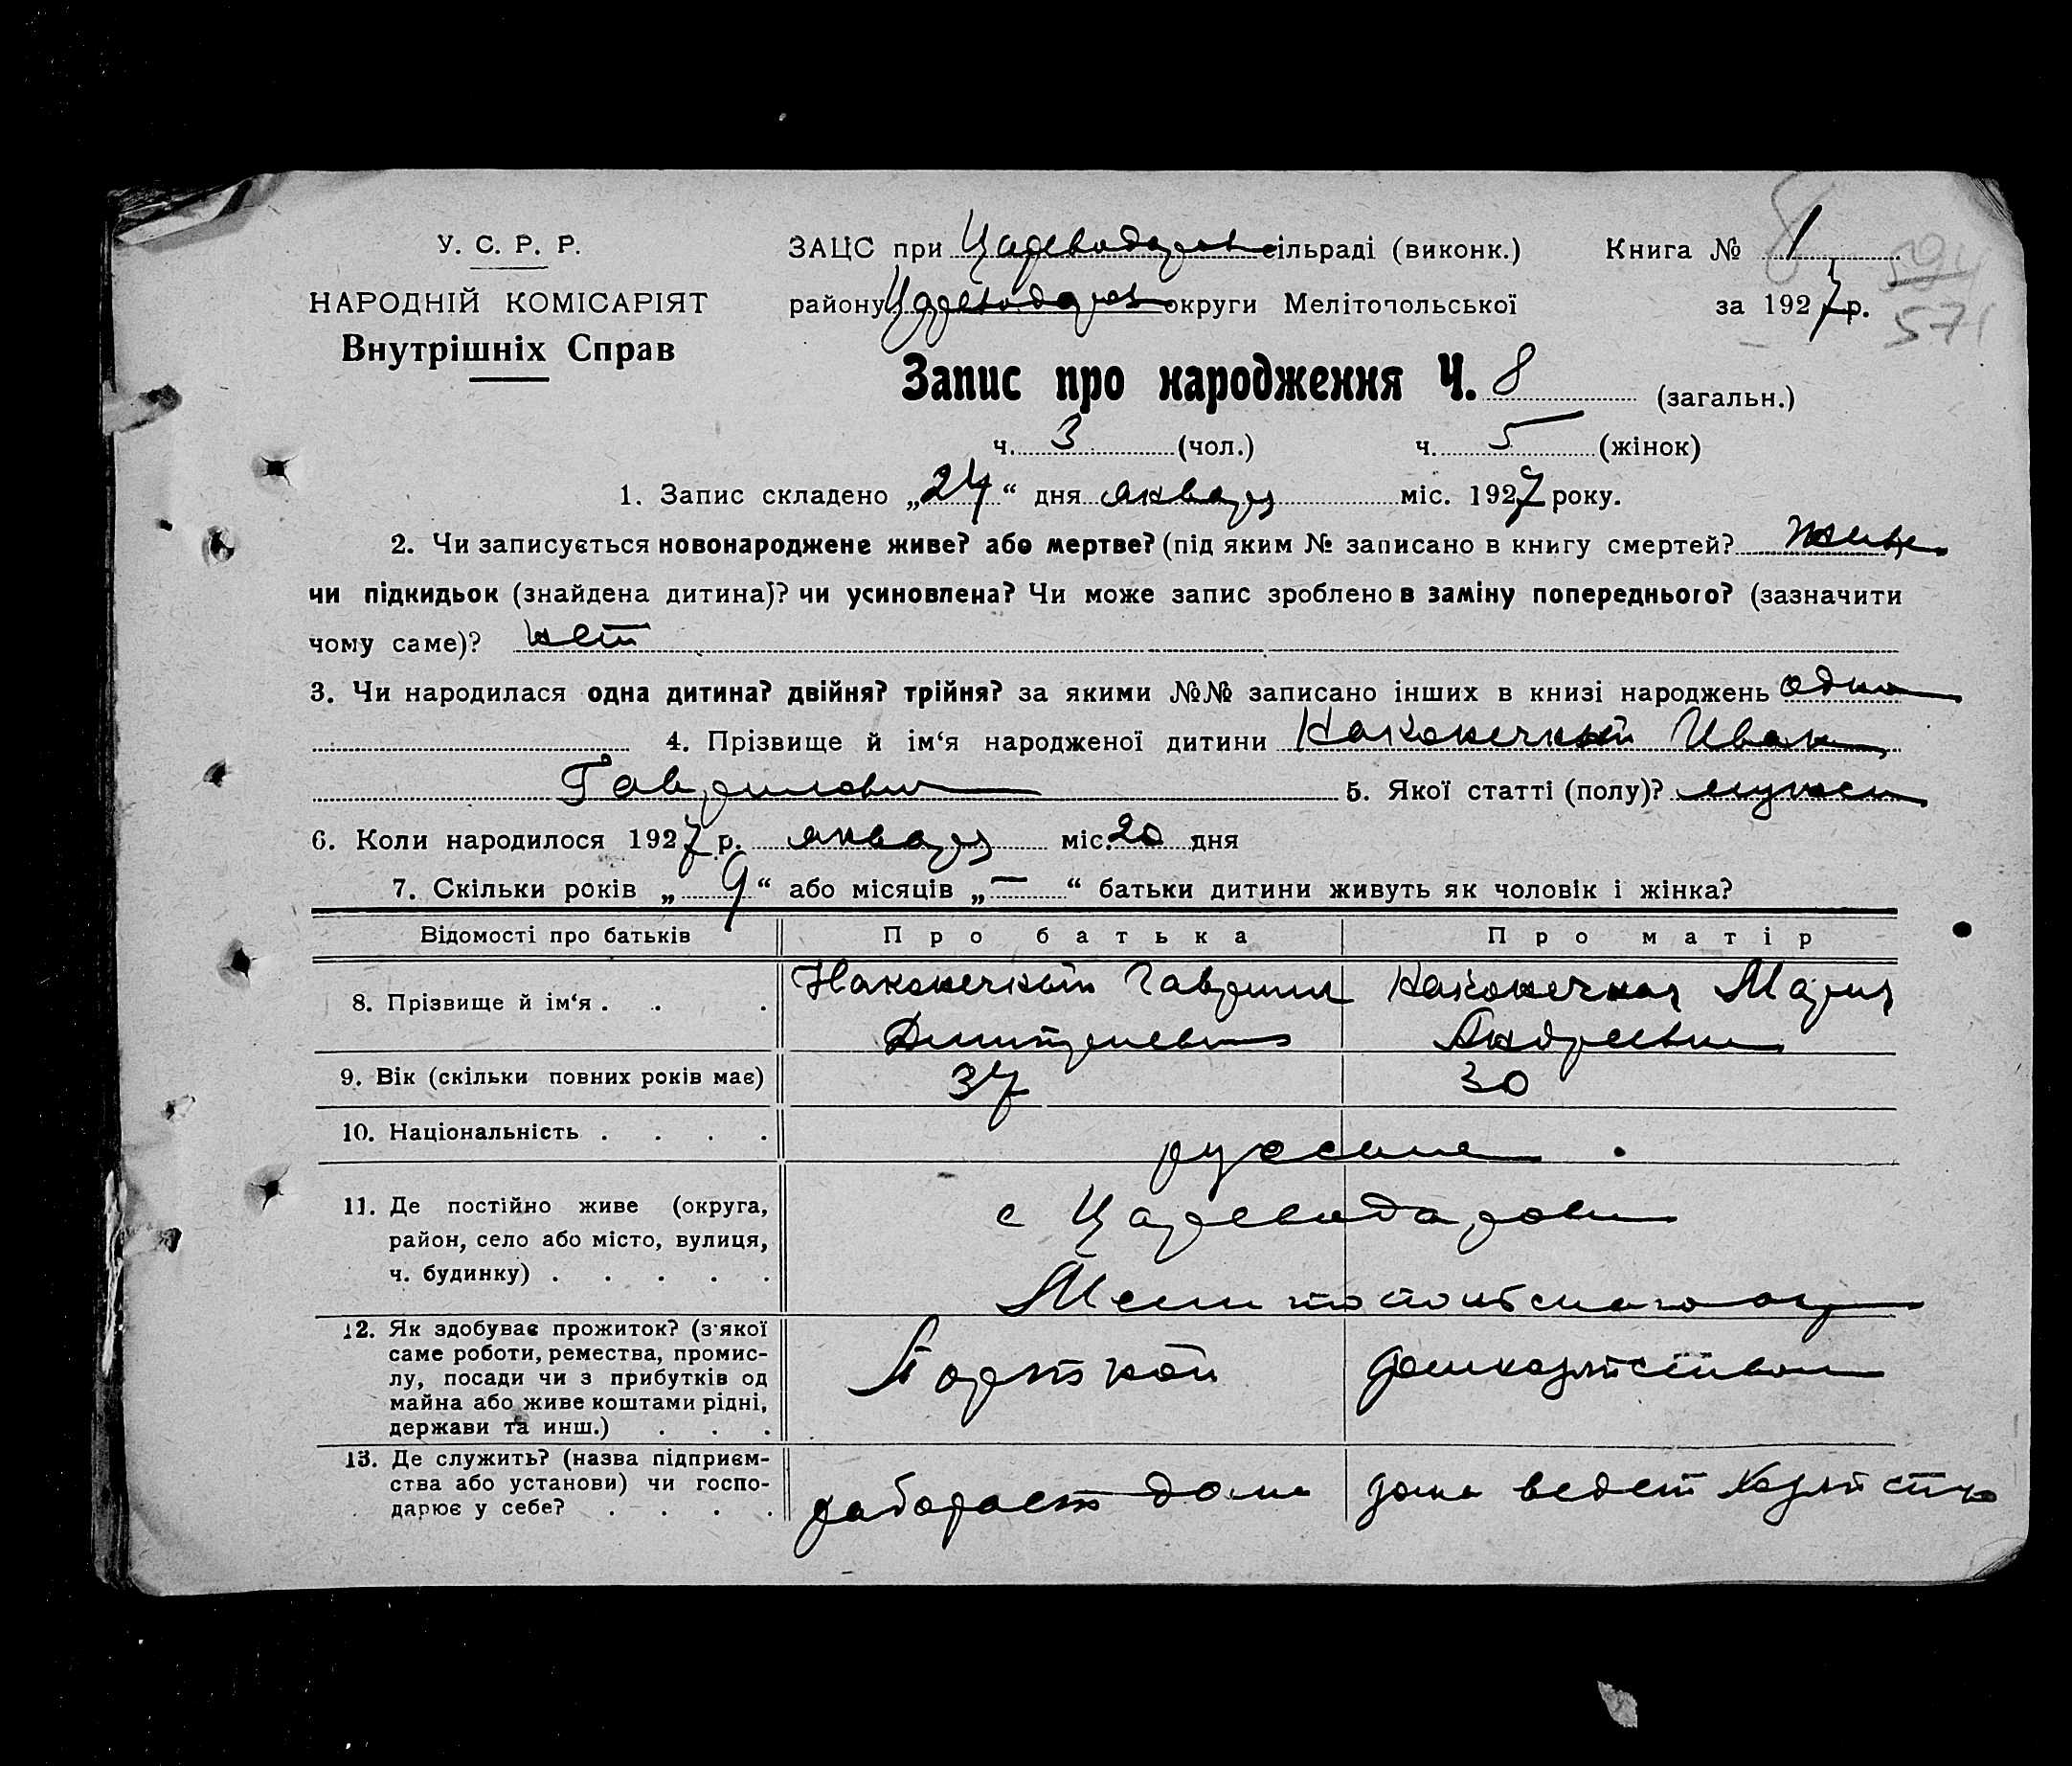 У. С. Р. Р.
НАРОДНІЙ КОМІСАРІЯТ
Внутрішніх Справ
ЗАЦС при Цареводаров сільраді (виконк.)
району Цареводаров округи Мелітопольської
Книга № 1
за 1927 р.
8
571
Запис про народження Ч. 8 (загальн.)
ч. 3 (чол.) ч. 5 (жінок)
1. Запис складено „24“ дня января міс. 1927 року.
2. Чи записується новонароджене живе? або мертве? (під яким № записано в книгу смертей?
чи підкидьок (знайдена дитина)? чи усиновлена? Чи може запис зроблено в заміну попереднього? (зазначити
чому саме)? нет
3. Чи народилася одна дитина? двійня? трійня? за якими №№ записано інших в книзі народжень одна
4. Прізвище й ім‘я народженої дитини Наконечный Иван
Гаврилович 5. Якої статті (полу)?
6. Коли народилося 1927 р. января міс. 20 дня
7. Скільки років „9“ або місяців „—“ батьки дитини живуть як чоловік і жінка?
Відомості про батьків Про батька Про матір
8. Прізвище й ім‘я . . . Наконечный Гаврил Наконечная Мария
Дмитриевич Андреевна
9. Вік (скільки повних років має) 37 30
10. Національність . . . . русские
11. Де постійно живе (округа, район, село або місто, вулиця, ч. будинку) . . . . . с Цареводаровка
Мелитопольского окр
12. Як здобуває прожиток? (з'якої
саме роботи, ремества, промис-
лу, посади чи з прибутків од
майна або живе коштами рідні,
держави та инш.) . . .
Портной домхозяйством
13. Де служить? (назва підприєм-
ства або установи) чи госпо-
дарює у себе? . . . .
работает дома дома ведет хозяйство